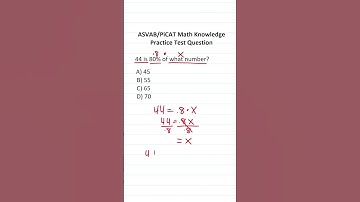 ASVAB/PiCAT Math Knowledge
Practice Test Question
.8 · x
44 is 80% of what number?
A) 45
B) 55
C) 65
D) 70
44 = .8 · x
44 = .8x
.8 .8
= x
4